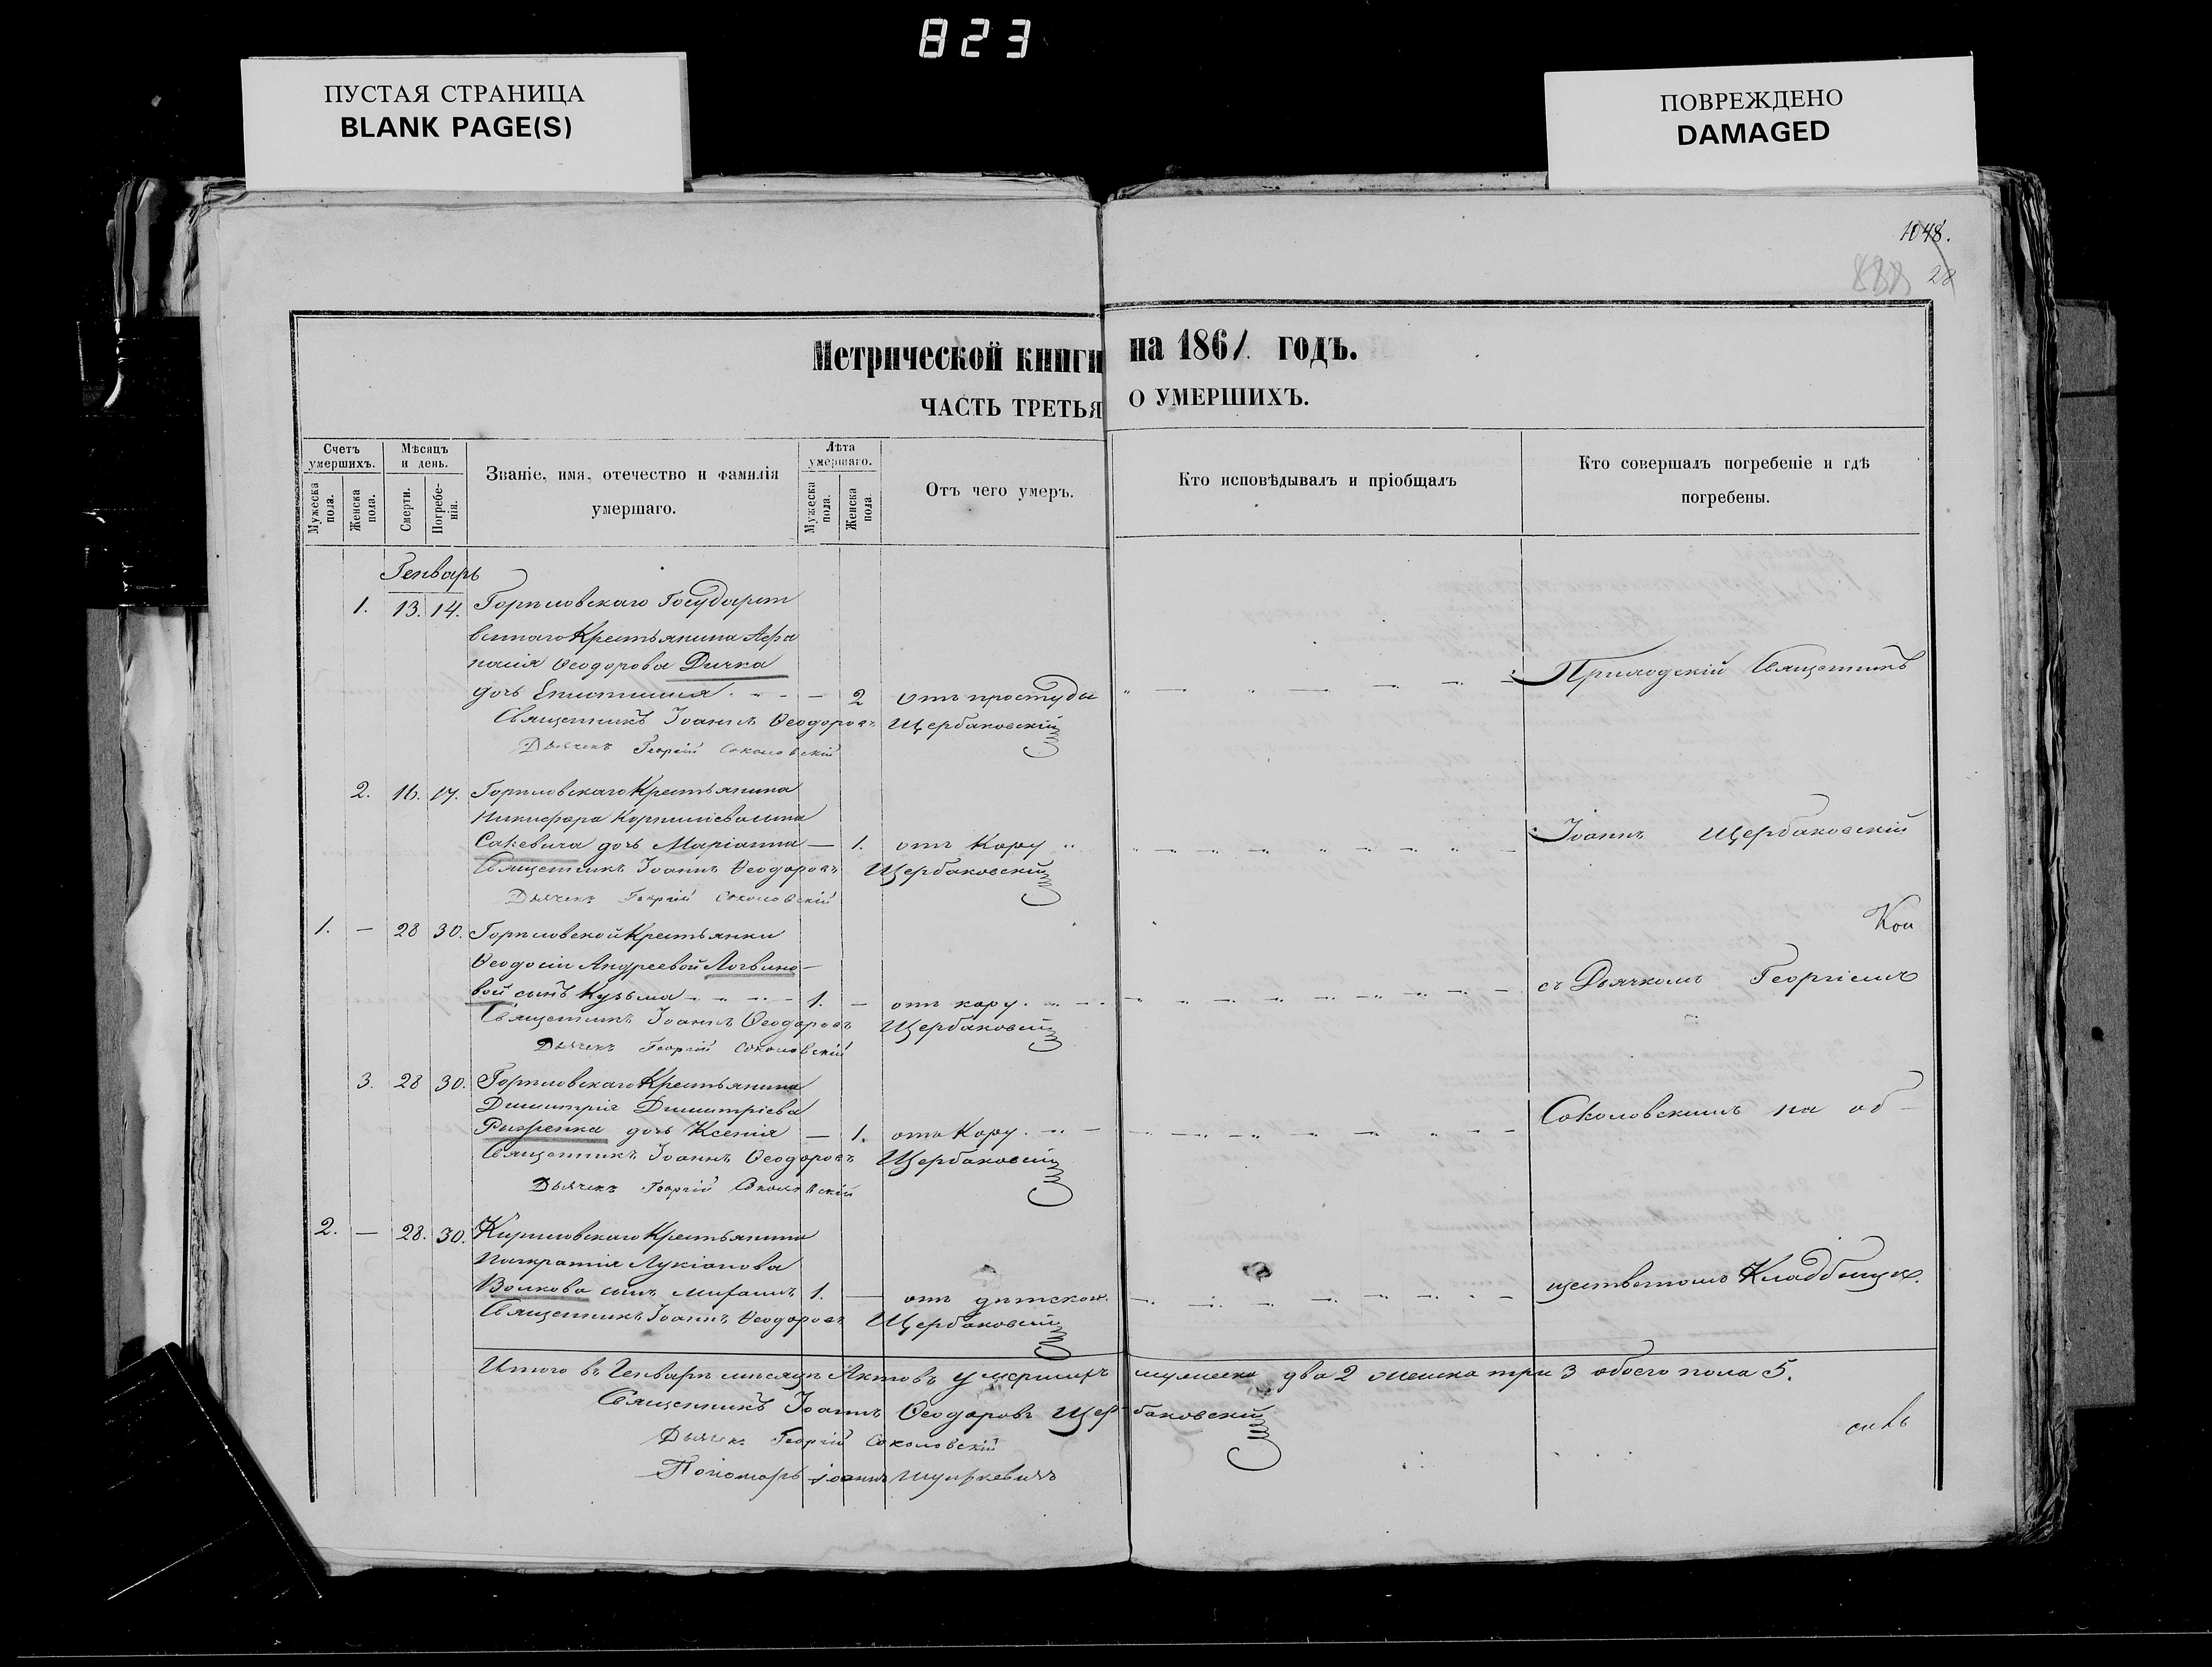 823
ПУСТАЯ СТРАНИЦА
BLANK PAGE(S)
ПОВРЕЖДЕНО
DAMAGED
1048.
28
Метрической книги на 1861 годъ.
ЧАСТЬ ТРЕТЬЯ О УМЕРШИХЪ.
Счетъ умершихъ.
Мѣсяцъ и день.
Званіе, имя, отечество и фамилія умершаго.
Лѣта умершаго.
Отъ чего умеръ.
Кто исповѣдывалъ и пріобщалъ
Кто совершалъ погребеніе и гдѣ погребены.
Мужеска пола.
Женска пола.
Смерти.
Погребенія.
Мужеска пола.
Женска пола.
Генварь
1. 13. 14. Горяловскаго Государст
веннаго Крестьянина Афа
насія Ѳеодорова Дичка
дочь Епистимія - - - 2 отъ простуды
Приходскій Священникъ
Священникъ Іоаннъ Ѳеодоровъ Щербаковскій
Дьячекъ Георгій Соколовскій
2. 16. 17. Горяловскаго Крестьянина
Никифора Корниліева сына
Сакевича дочь Маріанна — 1. отъ Кору
Іоаннъ Щербаковскій
Священникъ Іоаннъ Ѳеодоровъ Щербаковскій
Дьячекъ Георгій Соколовскій
1. — 28 30. Горяловской Крестьянки
Ѳеодосіи Андреевой Логвино-
вой сынъ Кузьма - - - 1. — отъ кору.
съ Дьячкомъ Георгіемъ
Священникъ Іоаннъ Ѳеодоровъ Щербаковскій
Дьячекъ Георгій Соколовскій
3. 28 30. Горяловскаго Крестьянина
Димитрія Димитріева
дочь Ксенія — 1. отъ Кору.
Соколовскимъ на об-
Священникъ Іоаннъ Ѳеодоровъ Щербаковскій
Дьячекъ Георгій Соколовскій
2. — 28. 30. Кириловскаго Крестьянина
Панкратія Лукіанова
Волкова сынъ 1. — отъ дѣтской.
щественномъ Кладбищѣ.
Священникъ Іоаннъ Ѳеодоровъ Щербаковскій
Итого въ Генварѣ мѣсяцѣ Актовъ умершихъ мужеска два 2 женска три 3 обоего пола 5.
Священникъ Іоаннъ Ѳеодоровъ Щербаковскій
Дьячекъ Георгій Соколовскій
Пономарь Іоаннъ